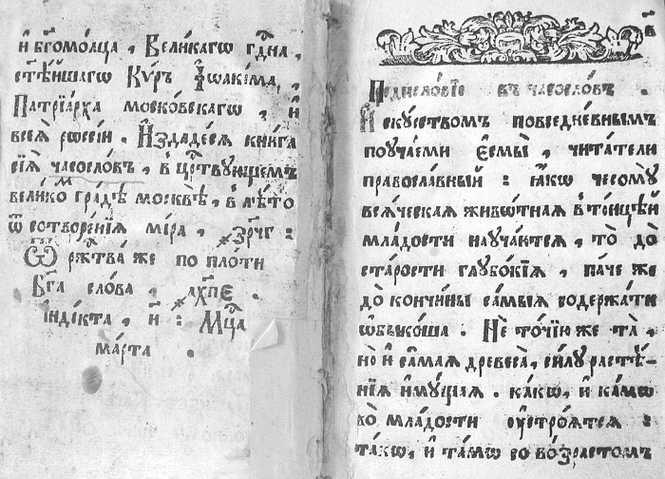 и҆ бг҃омо́лца , Вели́кагѡ гдⷭ҇на ,
ст҃ѣ́йшагѡ Ку́ръ І҆ѡаки́ма ,
Патрїа́рха моско́вскагѡ , и҆
всеѧ̀ рѡссі́и . И҆здаде́сѧ кни́га
сїѧ̀ часосло́въ , в̾ црⷭ҇твующемъ
вели́комъ гра́дѣ москвѣ̀ , в̾ лѣ́то
ѿ сотворе́нїѧ мі́ра , ҂зр҃чг :
Ѿ ржⷭ҇тва́ же по пло́ти
Бг҃а сло́ва , ҂ах҃пе .
і҆нді́кта , и҃ : Мцⷭ҇а
ма́рта .
в҃
Предисло́вїе въ часосло́въ .
И҆скꙋ́ствомъ повседне́внымъ
поуча́еми є҆смы̀ , чита́тели
правосла́вный : ꙗ҆́кѡ чесомꙋ̀
всѧ́ческаѧ живѡ́тнаѧ в̾ то́нцѣй
мла́дости науча́ютсѧ , то̀ до̀
ста́рости глубо́кїѧ , па́че же
до̀ кончи́ны самы́ѧ содержа́ти
ѡ҆бы́коша . Не то́чїю же та̀ ,
но̀ и҆ са́маѧ древеса̀ , си́лу расте́-
нїѧ и҆мꙋ́щаѧ . ка́кѡ , и҆ ка́мѡ
во̀ мла́дости оу҆строѧ́тсѧ :
та́кѡ , и҆ та́мѡ со во́зрастомъ